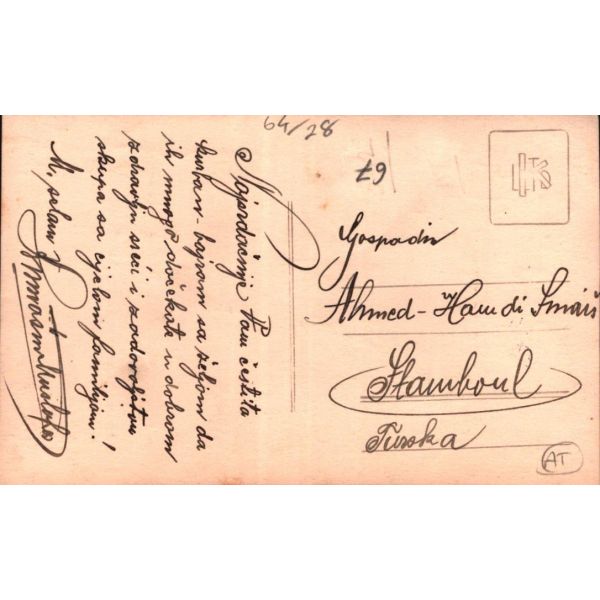 64/28
67
Najsrdačnije Vam čestita
kurban-bajram sa željom da
ih mnogo dočekate u dobrom
zdravlju sreći i zadovoljstvu
skupa sa cijelom familijom!
M. selam
Gospodin
Ahmed-Hamdi
Stamboul
Turska
AT